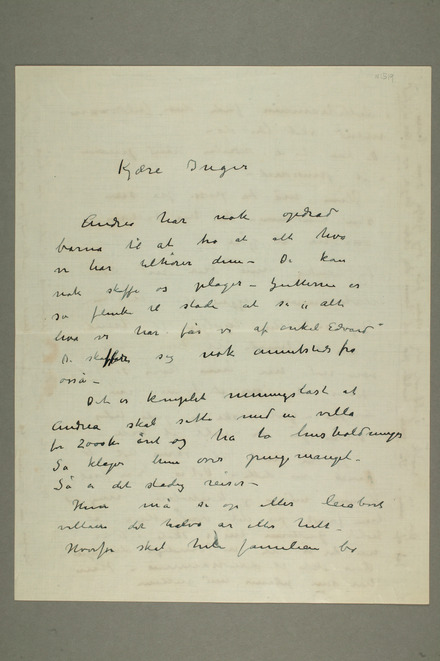 Kjære Inger
Andrea har nok opdrad
barna til at tro at alt hva
vi har tilhører dem – De kan
nok skaffe os plager – Guttene er
så flinke til stadi at si "alt
hva vi har får vi af onkel Edvard"
De skaffer sig nok annetsteds fra
også –
Det er komplet meningsløst at
Andrea skal sitte med en villa
for 2000 kr året og ha to husholdninger
Så klager hun over pengemangel –
Så er det stadig reiser –
Hun må si op eller leie bort
villaen det halve år eller helt –
Hvorfor skal hele familien bo